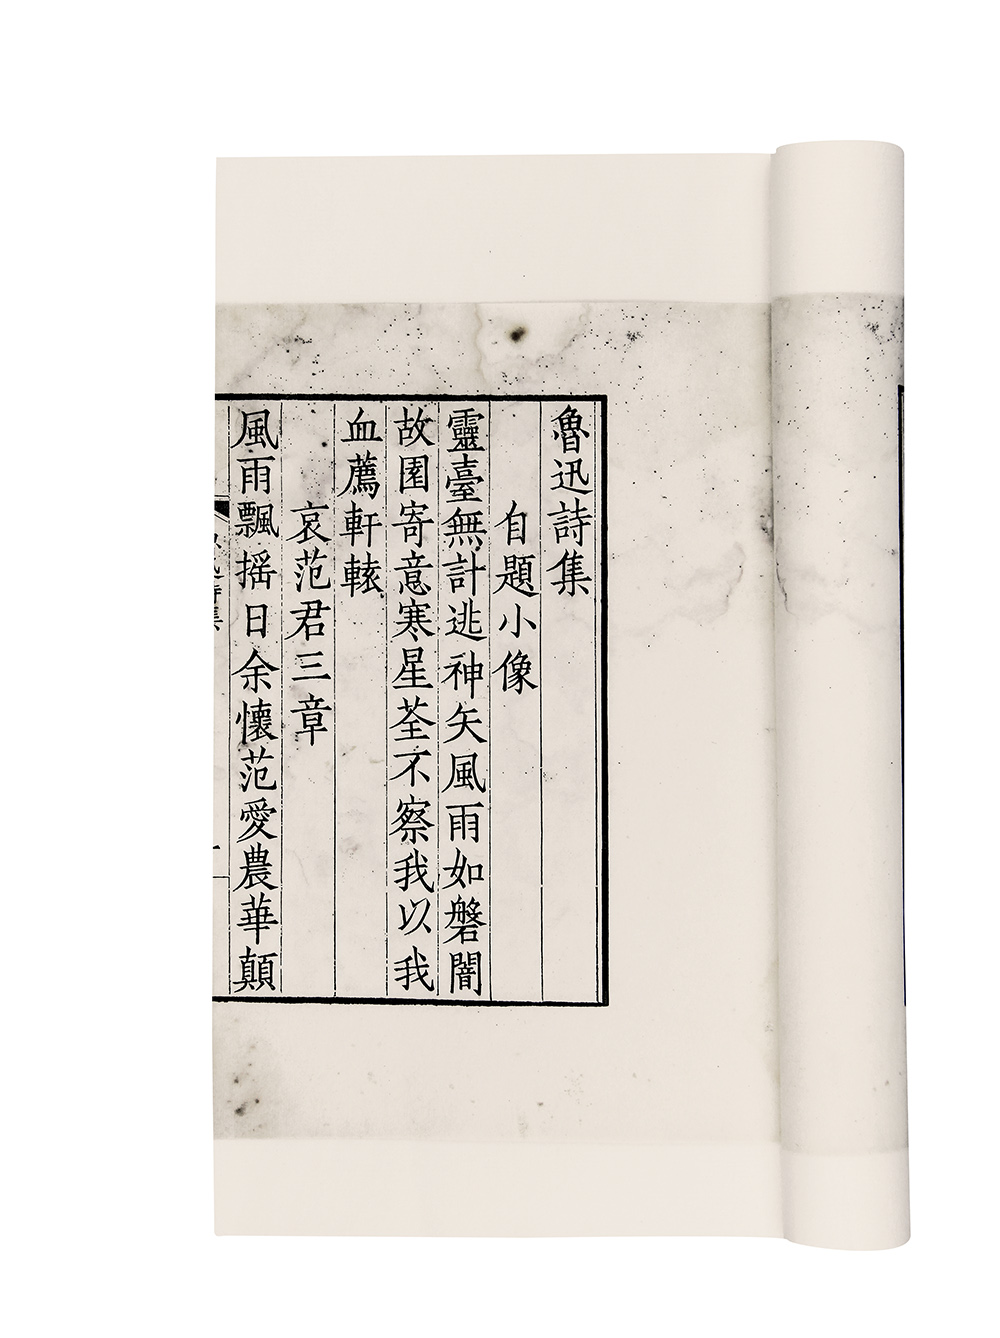 魯迅詩集
自題小像
靈臺無計逃神矢風雨如磐闇
故園寄意寒星荃不察我以我
血薦軒轅
哀范君三章
風雨飄搖日余懷范愛農華顛